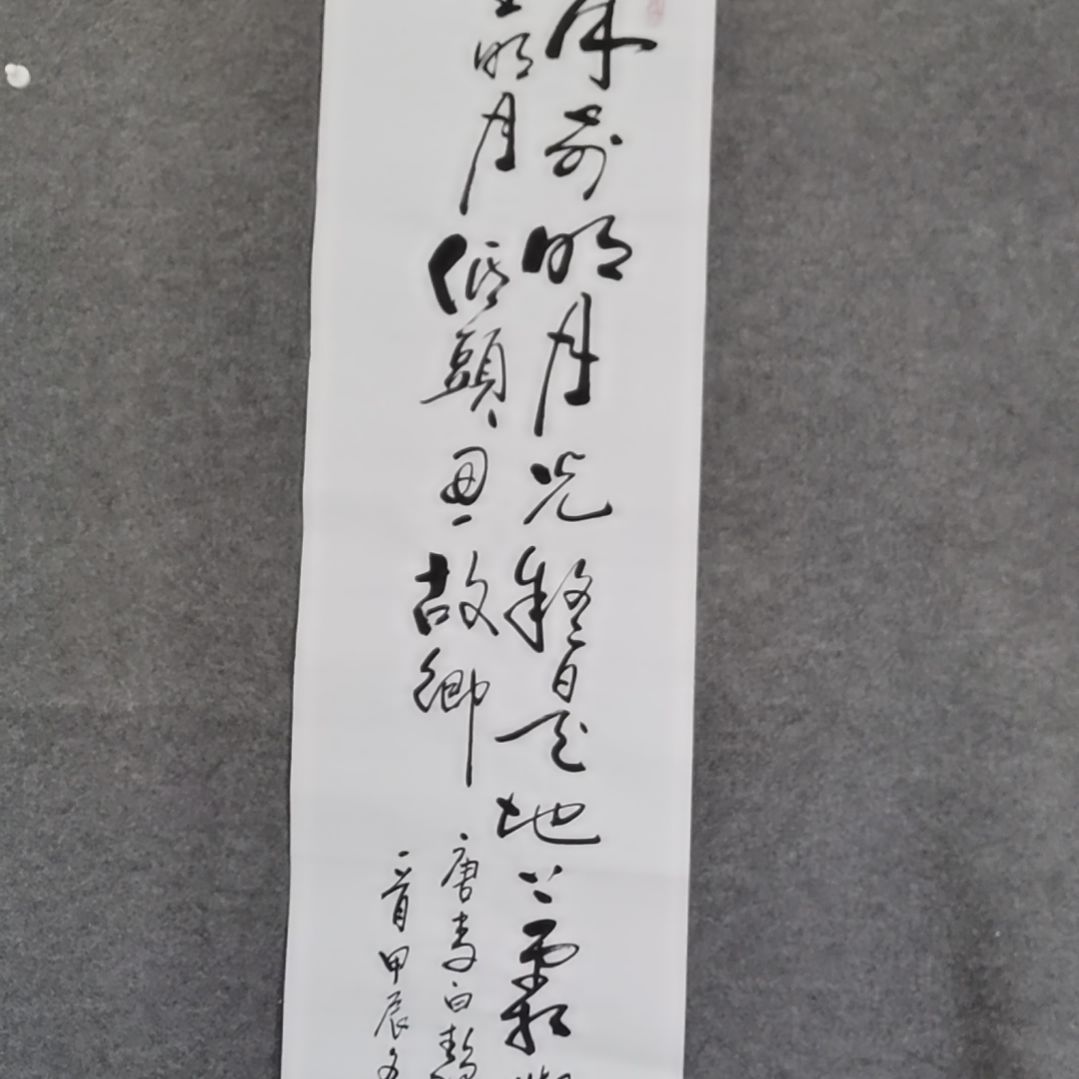 床前明月光疑是地上霜
明月低頭思故鄉
唐李白靜
一首甲辰冬